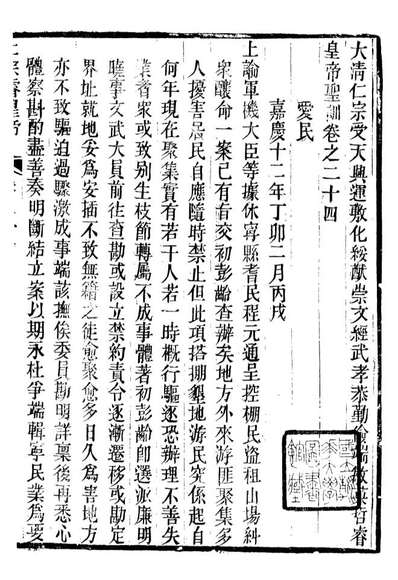 大清仁宗受天興運敷化綏猷崇文經武孝恭勤儉端敏英哲睿
皇帝聖訓卷之二十四
愛民
嘉慶十二年丁卯二月丙戌
上諭軍機大臣等據休寧縣耆民程元通呈控棚民盜租山場糾
衆釀命一案已有旨交初彭齡查辦矣地方外來游匪聚集多
人擾害居民自應隨時禁止但此項搭棚墾地游民究係起自
何年現在聚集實有若干人若一時概行驅逐恐辦理不善失
業者衆或致别生枝節轉屬不成事體著初彭齡卽選派廉明
曉事文武大員前往查勘或設立禁約責令逐漸遷移或勘定
界址就地妥爲安插不致無籍之徒愈聚愈多日久爲害地方
亦不致驅迫過驟激成事端該撫俟委員勘明詳稟後再悉心
體察斟酌盡善奏明斷結立案以期永杜爭端輯寧民業爲要